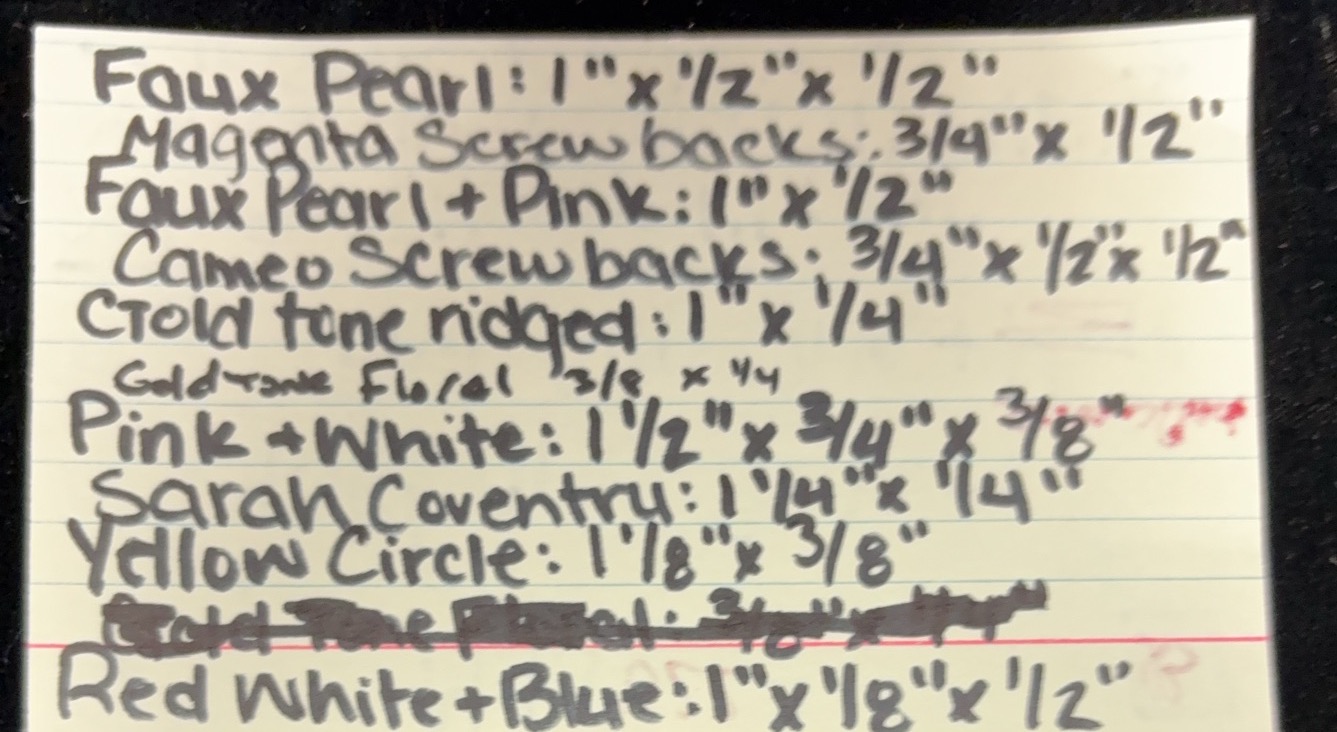 Faux Pearl: 1" x 1/2" x 1/2"
Magenta Screw backs: 3/4" x 1/2"
Faux Pearl + Pink: 1" x 1/2"
Cameo Screw backs: 3/4" x 1/2" x 1/2"
Gold tone ridged: 1" x 1/4"
Gold Tone Floral 3/8 x 1/4
Pink + White: 1 1/2" x 3/4" x 3/8"
Sarah Coventry: 1 1/4" x 1/4"
Yellow Circle: 1 1/8" x 3/8"
Red White + Blue: 1" x 1/8" x 1/2"